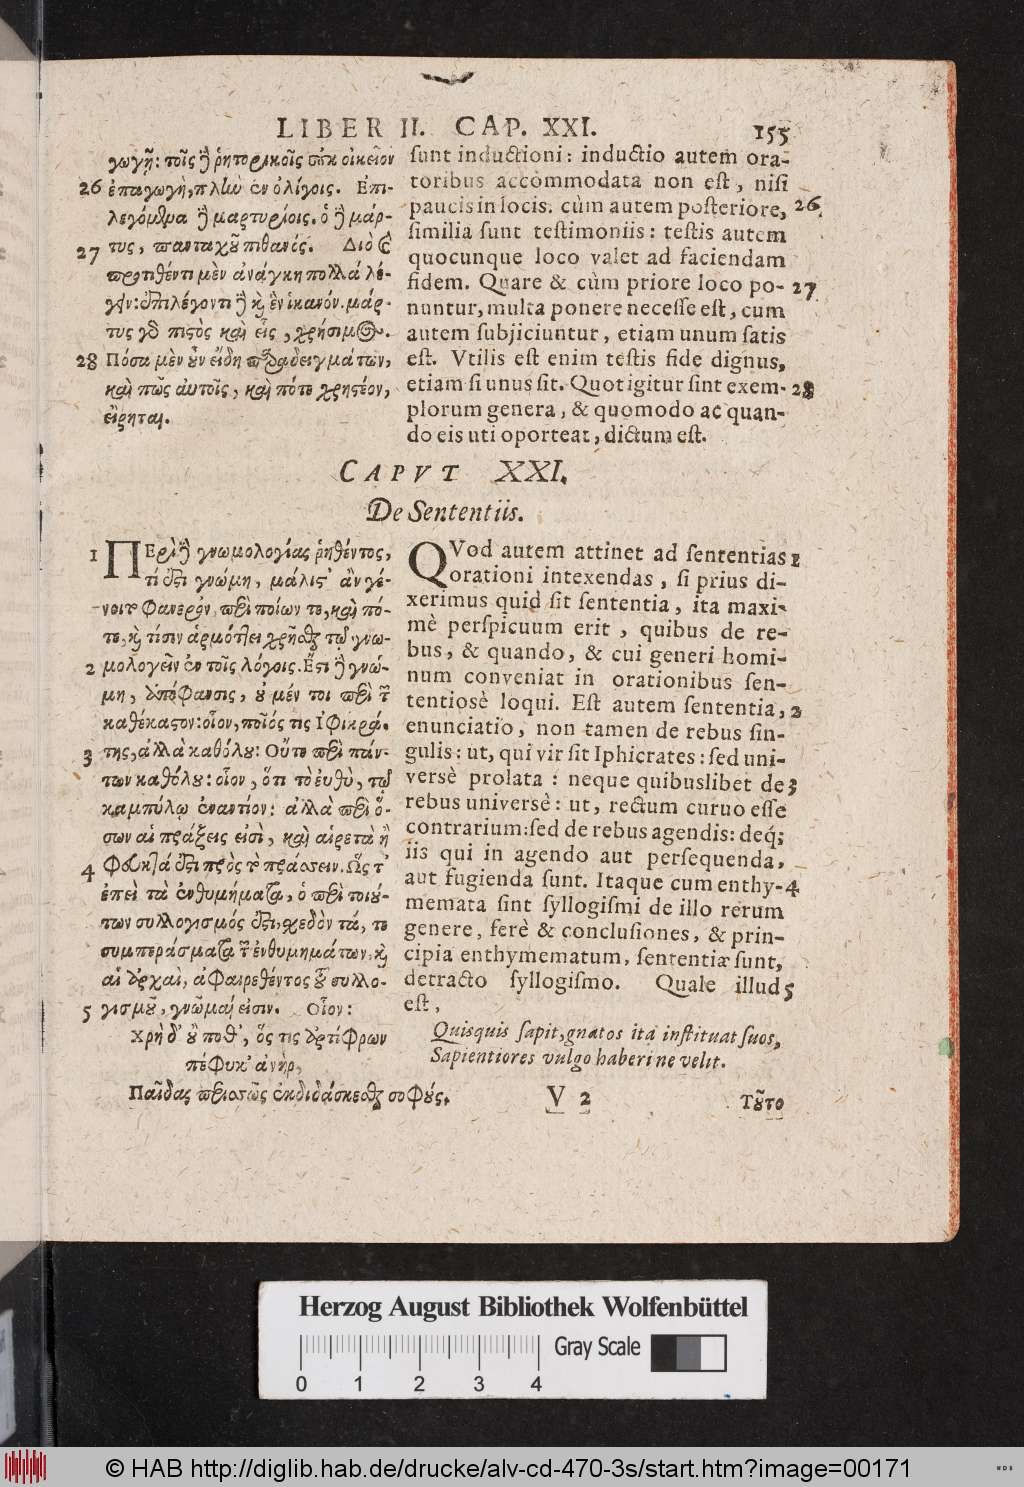 LIBER II. CAP. XXI. 155
γωγῇ: τοῖς ἢ ῥητορικοῖς οὐκ οἰκεῖον
26 ἐπαγωγὴ, πλὴν ἐν ὀλίγοις. Ἐπι-
λεγόμενα ἢ μαρτυρίοις. ὁ ἢ μάρ-
27 τυς, πανταχοῦ πιθανός. Διὸ καὶ
προτιθέντι μὲν ἀνάγκη πολλὰ λέ-
γειν: ἐπιλέγοντι ἢ κὶ ἓν ἱκανόν. μάρ-
τυς γὸ πιστὸς καὶ εἷς, χρήσιμος.
28 Πόσα μὲν οὖν εἴδη παραδειγμάτων,
καὶ πῶς αὐτοῖς, καὶ πότε χρηστέον,
εἴρηται.
sunt inductioni: inductio autem ora-
toribus accommodata non est, nisi
paucis in locis. cùm autem posteriore, 26
similia sunt testimoniis: testis autem
quocunque loco valet ad faciendam
fidem. Quare & cùm priore loco po- 27
nuntur, multa ponere necesse est, cum
autem subjiciuntur, etiam unum satis
est. Vtilis est enim testis fide dignus,
etiam si unus sit. Quot igitur sint exem- 28
plorum genera, & quomodo ac quan-
do eis uti oporteat, dictum est.
CAPVT XXI.
De Sententiis.
1 ΠΕρὶ ἢ γνωμολογίας ῥηθέντος,
τί ἐστι γνώμη, μάλιστ' ἂν γέ-
νοιτο φανερὸν, περὶ ποίων τε, καὶ πό-
τε, κὶ τίσιν ἁρμόττει χρῆσθαι τῷ γνω-
2 μολογεῖν ἐν τοῖς λόγοις. Ἔστι ἢ γνώ-
μη, ἀπόφανσις, οὐ μέν τοι περὶ τῶν
καθέκαστον: οἷον, ποῖός τις Ἰφικρά-
3 της, ἀλλὰ καθόλου: Οὔτε περὶ πάν-
των καθόλου: οἷον, ὅτι τὸ εὐθὺ, τῷ
καμπύλῳ ἐναντίον: ἀλλὰ περὶ ὅ-
σων αἱ πράξεις εἰσὶ, καὶ αἱρετὰ ἢ
4 φευκτά ἐστι πρὸς τὸ πράσσειν. Ὥς τ'
ἐπεὶ τὰ ἐνθυμήματα, ὁ περὶ τοιού-
των συλλογισμός ἐστι, σχεδὸν τά, τε
συμπεράσματα τῶν ἐνθυμημάτων, κὶ
αἱ ἀρχαὶ, ἀφαιρεθέντος τοῦ συλλο-
5 γισμοῦ, γνῶμαί εἰσιν. Οἷον:
Χρὴ δ' οὔ ποθ', ὅς τις ἀρτίφρων
πέφυκ' ἀνὴρ,
Παῖδας περισσῶς ἐκδιδάσκεσθαι σοφούς.
QVod autem attinet ad sententias 1
orationi intexendas, si prius di-
xerimus quid sit sententia, ita maxi-
mè perspicuum erit, quibus de re-
bus, & quando, & cui generi homi-
num conveniat in orationibus sen-
tentiosè loqui. Est autem sententia, 2
enunciatio, non tamen de rebus sin-
gulis: ut, qui vir sit Iphicrates: sed uni-
versè prolata: neque quibuslibet de 3
rebus universè: ut, rectum curuo esse
contrarium: sed de rebus agendis: deq;
iis qui in agendo aut persequenda,
aut fugienda sunt. Itaque cum enthy- 4
memata sint syllogismi de illo rerum
genere, ferè & conclusiones, & prin-
cipia enthymematum, sententiæ sunt,
detracto syllogismo. Quale illud 5
est,
Quisquis sapit, gnatos ita instituat suos,
Sapientiores vulgo haberi ne velit.
V 2 Τοῦτο
Herzog August Bibliothek Wolfenbüttel
Gray Scale
0 1 2 3 4
© HAB http://diglib.hab.de/drucke/alv-cd-470-3s/start.htm?image=00171